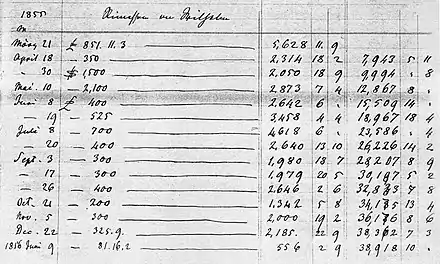 1855 Rimessen von Wilhelm
März 21 £ 851.11.3 5,628 11 9
April 18 - 350 2,314 18 2 7,943 5 11
" 30 1,500 2,050 18 9 9,994 . 8
Mai. 10 - 2,100 2,873 7 4 12,867 8 .
Juni 8 £ 400 2,642 6 . 15,509 14 .
- 19 - 525 3,458 4 4 18,967 18 4
Juli 8 - 700 4,618 6 . 23,586 . 4
20 - 400 2,640 13 10 26,226 14 2
Sept. 3 - 300 1,980 18 7 28,207 8 9
- 17 - 300 1,979 20 5 30,187 5 2
- 26 - 400 2,646 2 6 32,833 7 8
Oct. 21 - 200 1,342 5 8 34,185 13 4
Nov. 5 - 300 2,000 19 2 36,186 8 6
Dec. 22 - 325.9. 2,185. 22 9 38,362 7 3
1856 Juni 9 - 81.16.2 556 2 9 38,918 10 .